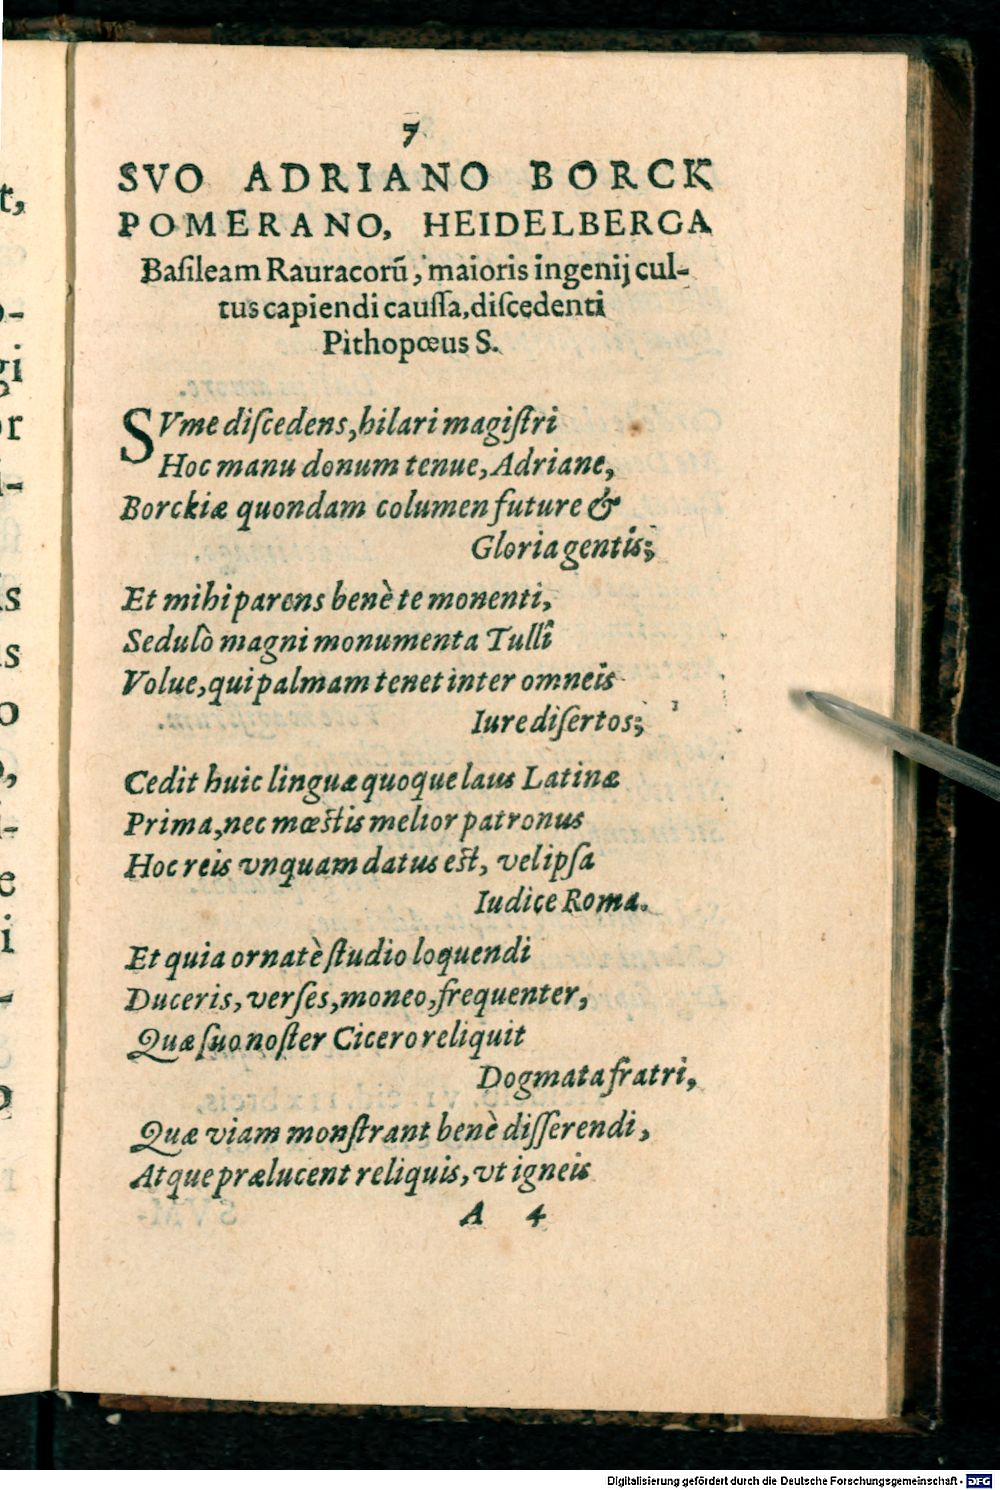 7
SVO ADRIANO BORCK
POMERANO, HEIDELBERGA
Baſileam Rauracorū, maioris ingenij cul-
tus capiendi cauſſa, diſcedenti
Pithopœus S.
SVme diſcedens, hilari magiſtri
Hoc manu donum tenue, Adriane,
Borckiæ quondam columen future &
Gloria gentis;
Et mihi parens benè te monenti,
Sedulò magni monumenta Tullî
Volue, qui palmam tenet inter omneis
Iure diſertos;
Cedit huic linguæ quoque laus Latinæ
Prima, nec mœstis melior patronus
Hoc reis vnquam datus est, vel ipſa
Iudice Roma.
Et quia ornatè ſtudio loquendi
Duceris, verſes, moneo, frequenter,
Quæ ſuo noſter Cicero reliquit
Dogmata fratri,
Quæ viam monſtrant benè diſſerendi,
Atque prælucent reliquis, vt igneis
A 4
Digitalisierung gefördert durch die Deutsche Forschungsgemeinschaft - DFG